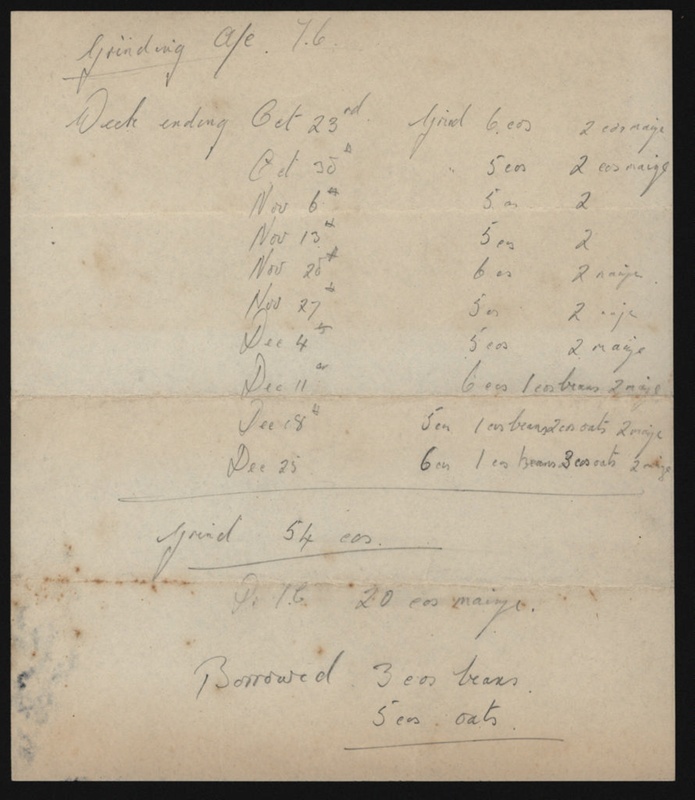 Grinding A/c. T.G.
Week ending Oct 23rd. Grind 6 cos 2 cos maize
Oct 30th " 5 cos 2 cos maize
Nov 6th 5 cos 2
Nov 13th 5 cos 2
Nov 20th 6 cos 2 maize
Nov 27th 5 cos 2 maize
Dec 4th 5 cos 2 maize
Dec 11th 6 cos 1 cos beans 2 maize
Dec 18th 5 cos 1 cos beans 2 cos oats 2 maize
Dec 25 6 cos 1 cos beans 3 cos oats 2 maize
Grind 54 cos.
20 cos maize.
Borrowed 3 cos beans.
5 cos. oats.